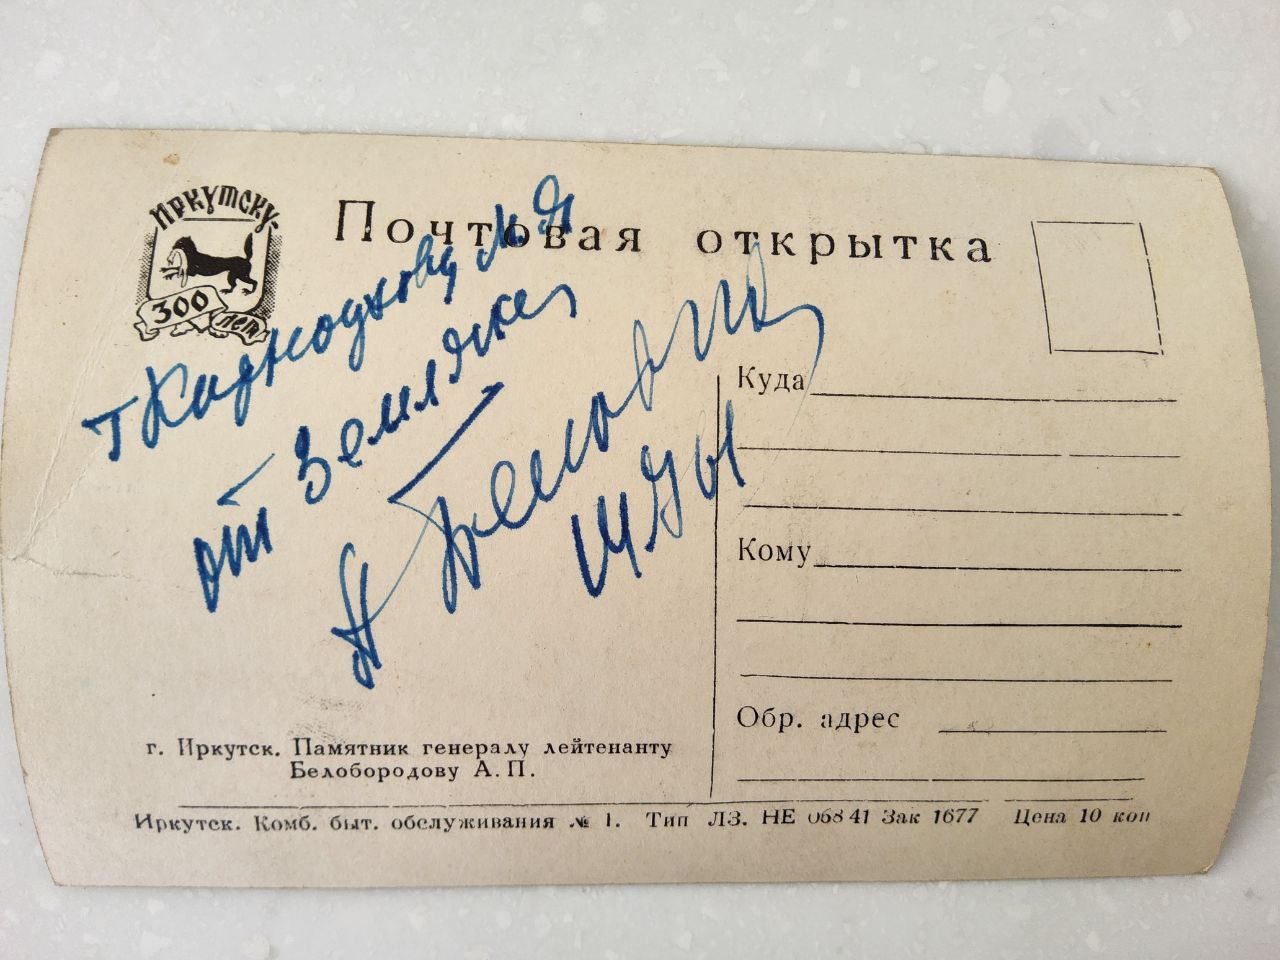 ИРКУТСКУ-
300
лет
Почтовая открытка
т М. Я
от Земляка
А
Куда
Кому
Обр. адрес
г. Иркутск. Памятник генералу лейтенанту
Белобородову А. П.
Иркутск. Комб. быт. обслуживания № 1. Тип ЛЗ. НЕ 06841 Зак 1677 Цена 10 коп